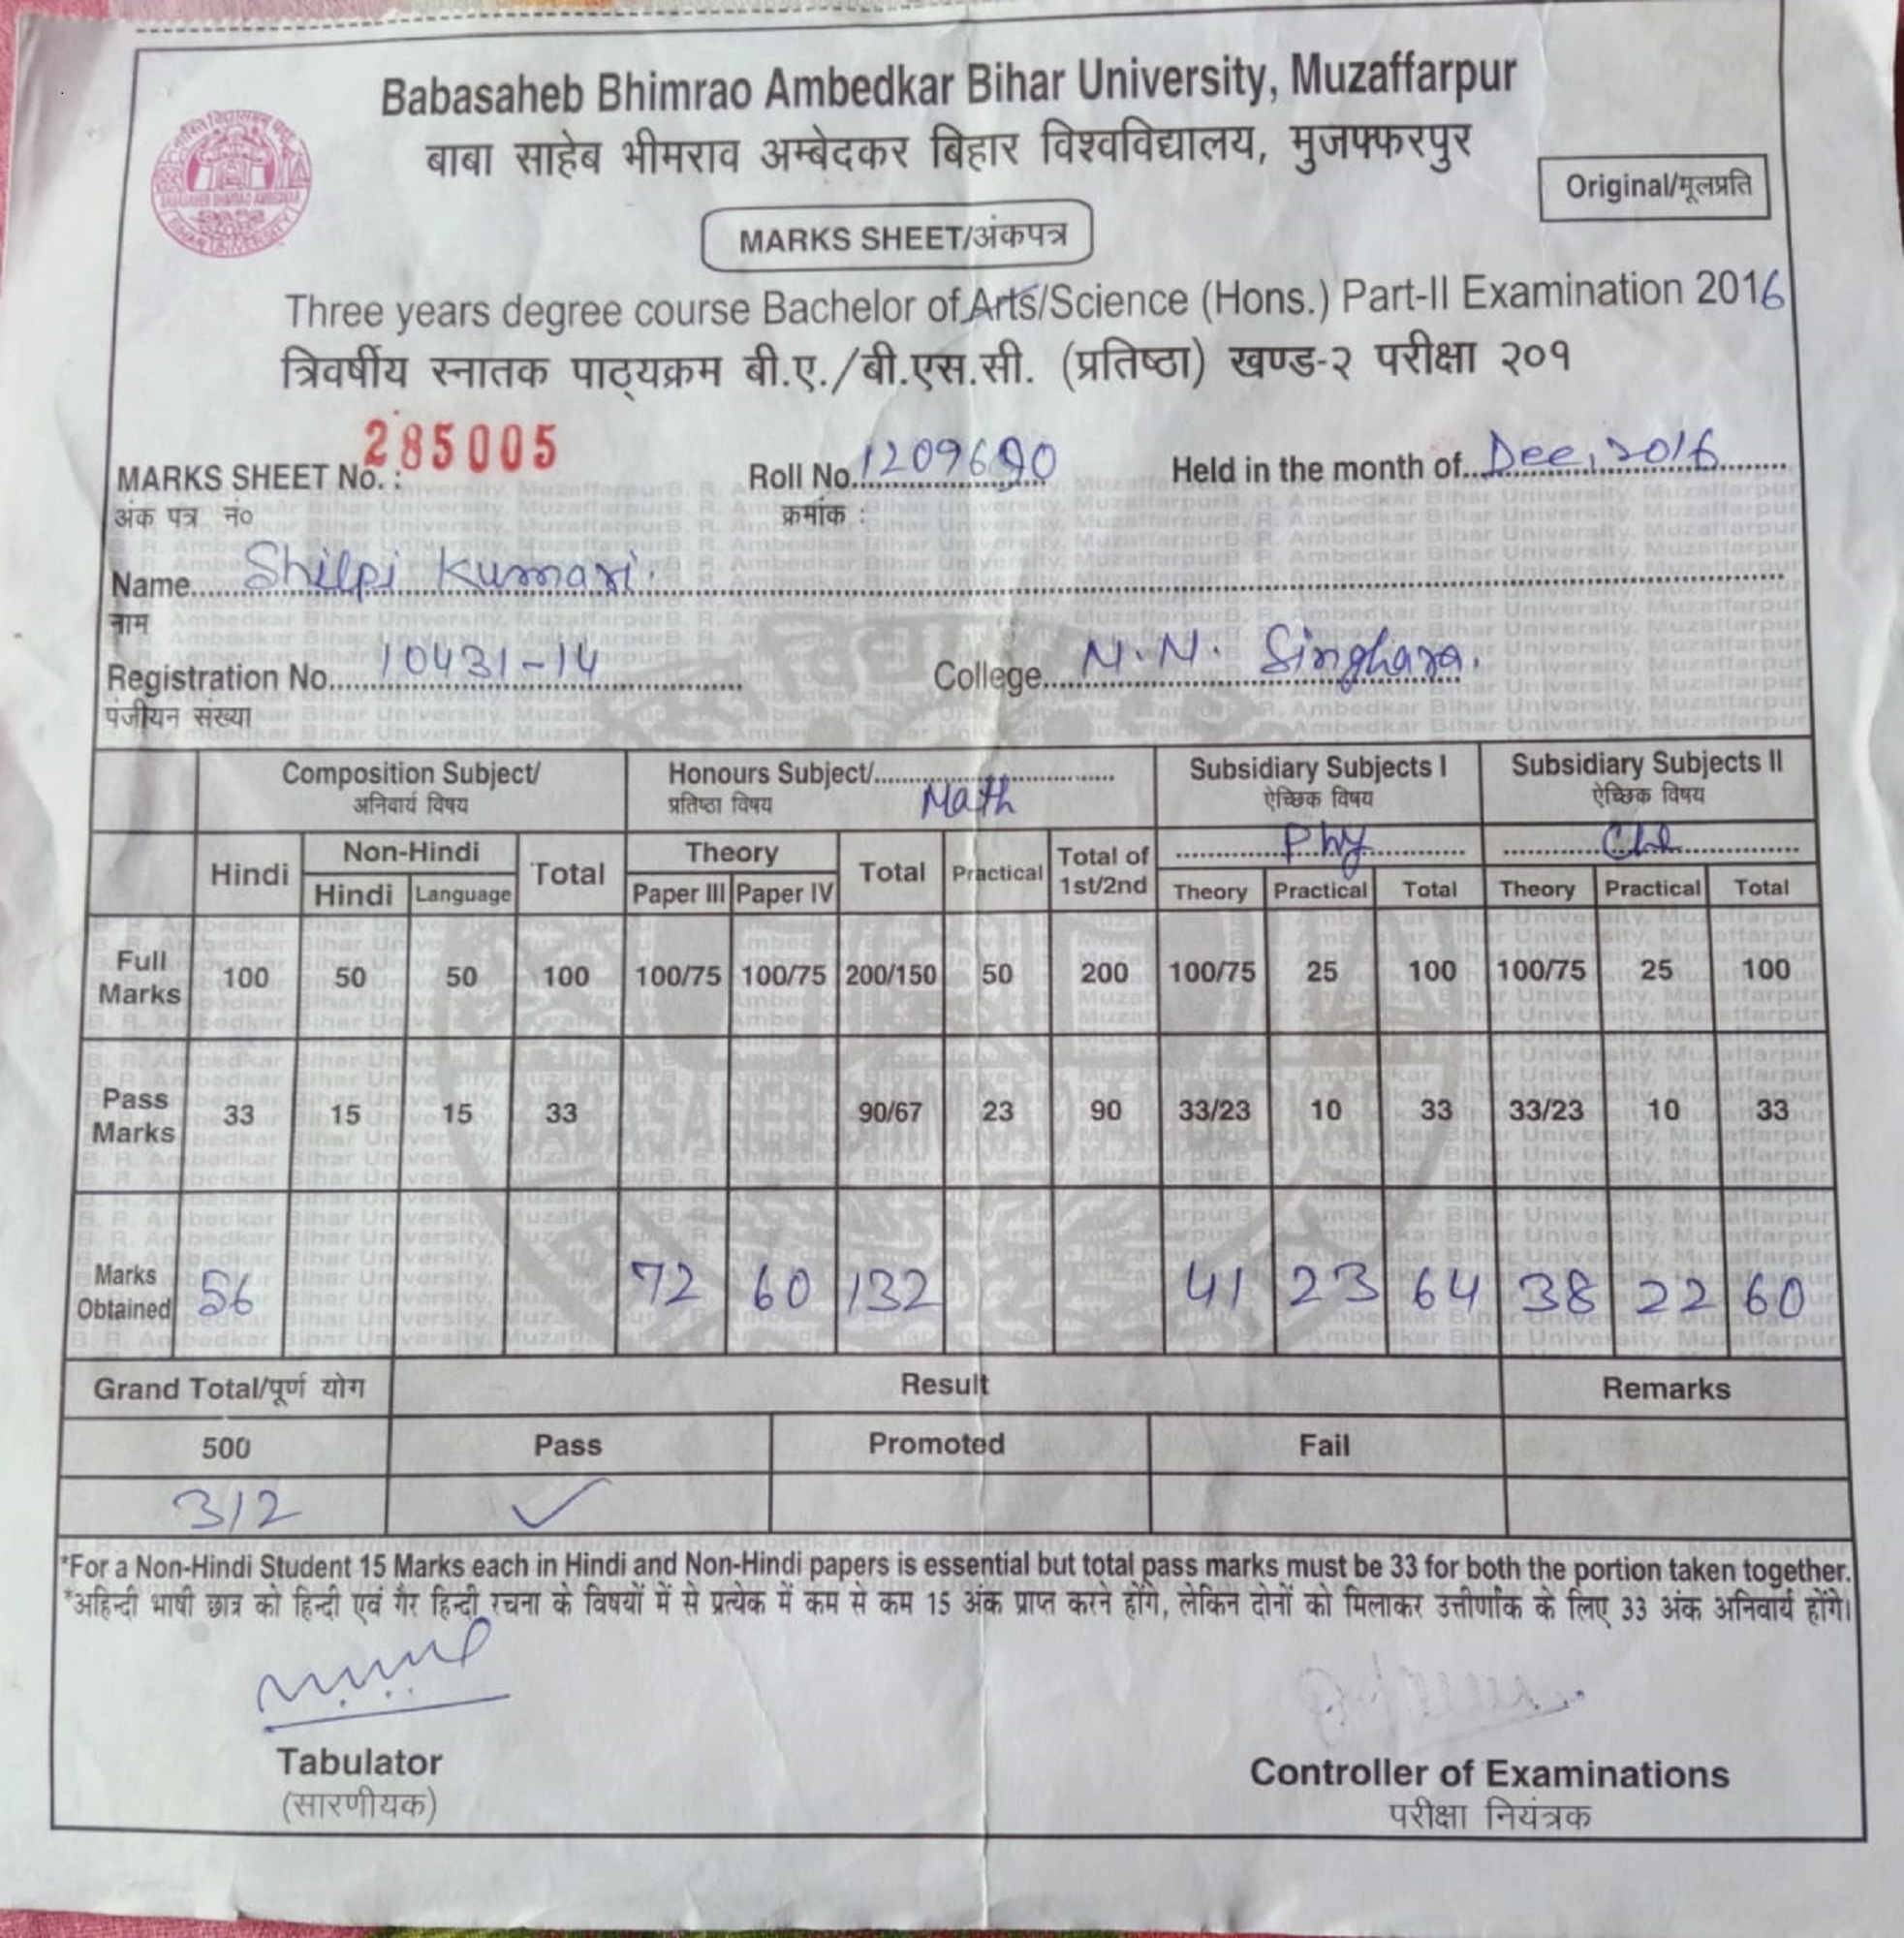 Babasaheb Bhimrao Ambedkar Bihar University, Muzaffarpur
बाबा साहेब भीमराव अम्बेदकर बिहार विश्वविद्यालय, मुजफ्फरपुर
Original/मूलप्रति
MARKS SHEET/अंकपत्र
Three years degree course Bachelor of Arts/Science (Hons.) Part-II Examination 2016
त्रिवर्षीय स्नातक पाठ्यक्रम बी.ए./बी.एस.सी. (प्रतिष्ठा) खण्ड-२ परीक्षा २०१
MARKS SHEET No. : 285005 Roll No. 1209690 Held in the month of Dec, 2016
अंक पत्र नं० क्रमांक :
Name Shilpi Kumari.
नाम
Registration No. 10431-14 College N.N. Singhara.
पंजीयन संख्या
Composition Subject/ Honours Subject/ Math Subsidiary Subjects I Subsidiary Subjects II
अनिवार्य विषय प्रतिष्ठा विषय ऐच्छिक विषय ऐच्छिक विषय
Phy Che
Hindi Non-Hindi Total Theory Total Practical Total of 1st/2nd
Hindi Language Paper III Paper IV Theory Practical Total Theory Practical Total
Full Marks 100 50 50 100 100/75 100/75 200/150 50 200 100/75 25 100 100/75 25 100
Pass Marks 33 15 15 33 90/67 23 90 33/23 10 33 33/23 10 33
Marks Obtained 56 72 60 132 41 23 64 38 22 60
Grand Total/पूर्ण योग Result Remarks
500 Pass Promoted Fail
312 ✓
*For a Non-Hindi Student 15 Marks each in Hindi and Non-Hindi papers is essential but total pass marks must be 33 for both the portion taken together.
*अहिन्दी भाषी छात्र को हिन्दी एवं गैर हिन्दी रचना के विषयों में से प्रत्येक में कम से कम 15 अंक प्राप्त करने होंगे, लेकिन दोनों को मिलाकर उत्तीर्णांक के लिए 33 अंक अनिवार्य होंगे।
Tabulator
(सारणीयक)
Controller of Examinations
परीक्षा नियंत्रक